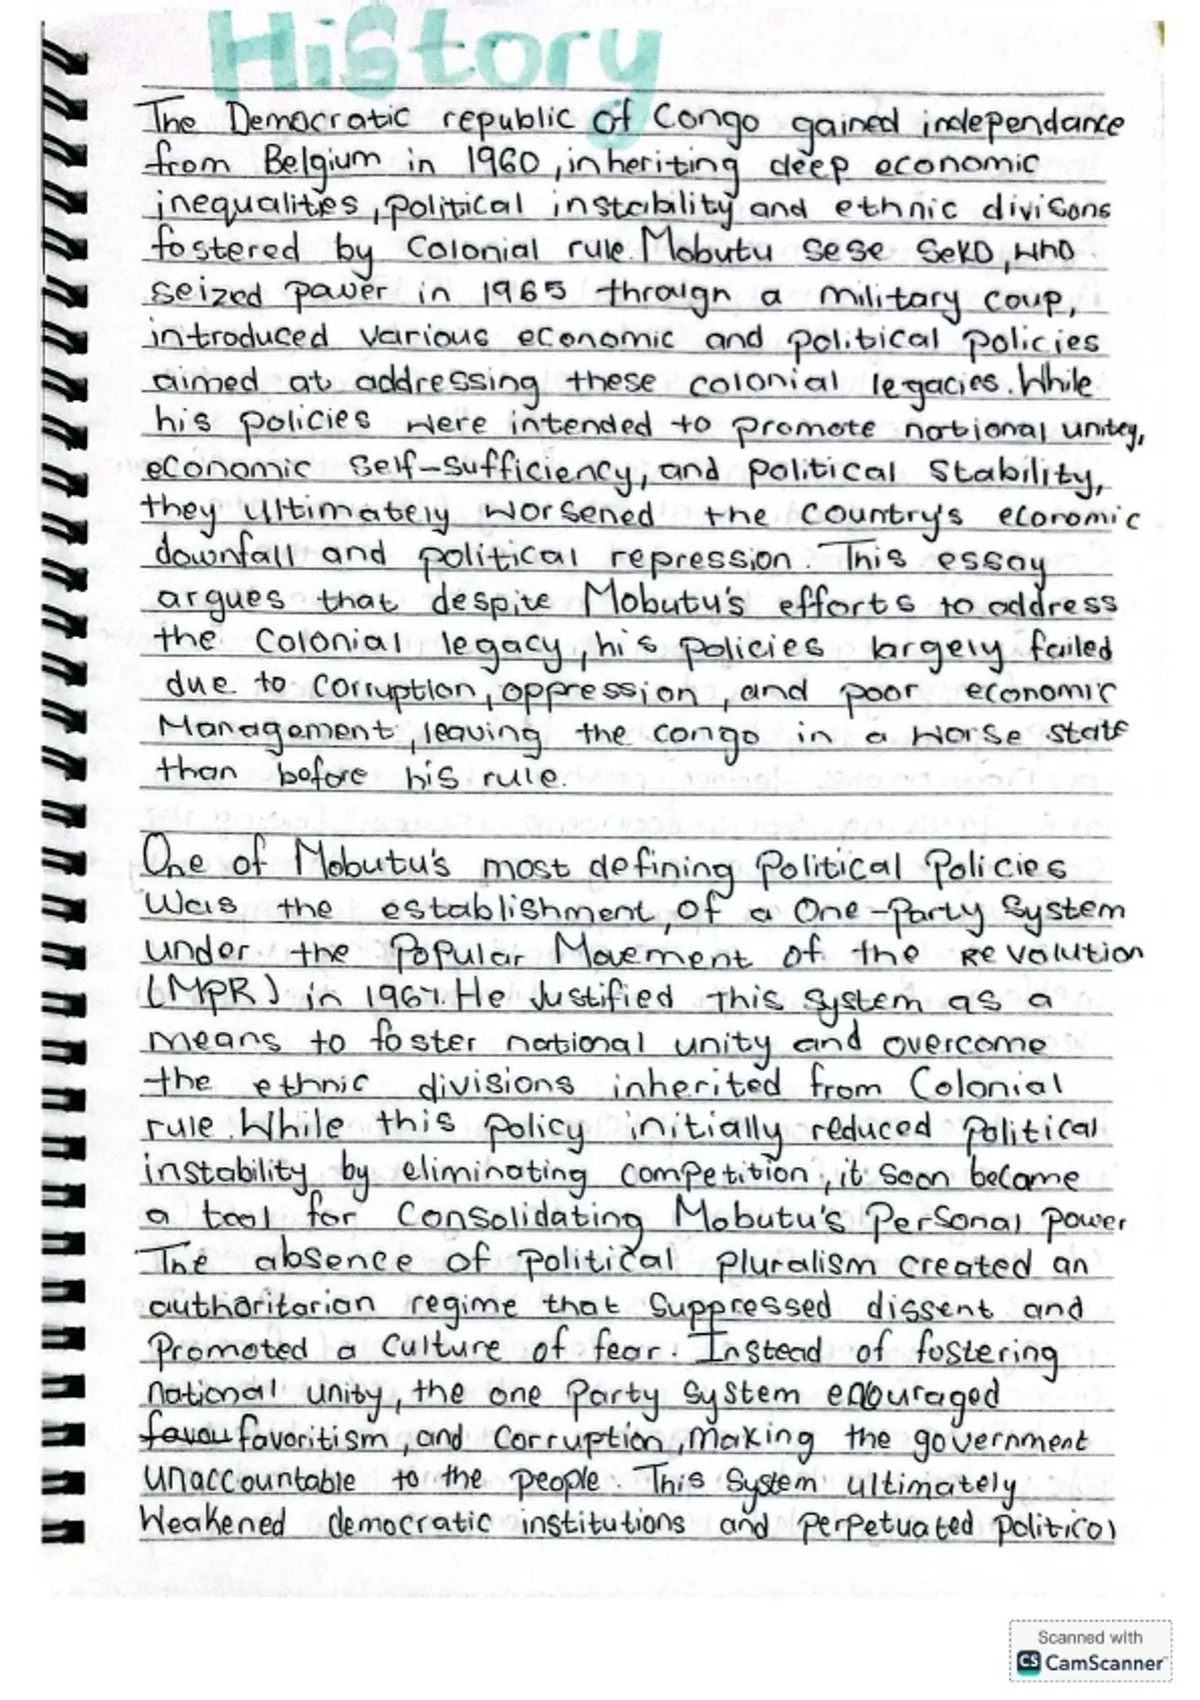 History
The Democratic republic of Congo gained independance
from Belgium in 1960, inheriting deep economic
inequalities, political instability and ethnic divisons
fostered by Colonial rule. Mobutu Sese Seko, who
seized power in 1965 through a military coup,
introduced various economic and political policies
aimed at addressing these colonial legacies. While
his policies were intended to promote national unitey,
economic self-sufficiency, and political stability,
they ultimately worsened the country's economic
downfall and political repression. This essay
argues that despite Mobutu's efforts to address
the Colonial legacy, his policies largely failed
due to corruption, oppression, and poor economic
Management, leaving the congo in a worse state
than before his rule.
One of Mobutu's most defining Political Policies
was the establishment of a One-Party System
under the Popular Movement of the Revolution
(MPR) in 1967. He Justified this system as a
means to foster national unity and overcome
the ethnic divisions inherited from Colonial
rule. While this policy initially reduced Political
instability by eliminating competition, it soon became
a tool for Consolidating Mobutu's Personal power
The absence of political pluralism created an
authoritarian regime that suppressed dissent and
Promoted a culture of fear. Instead of fostering
national unity, the one party system encouraged
favou favoritism, and Corruption, making the government
unaccountable to the people. This System ultimately
Weakened democratic institutions and perpetuated political
Scanned with
CS CamScanner